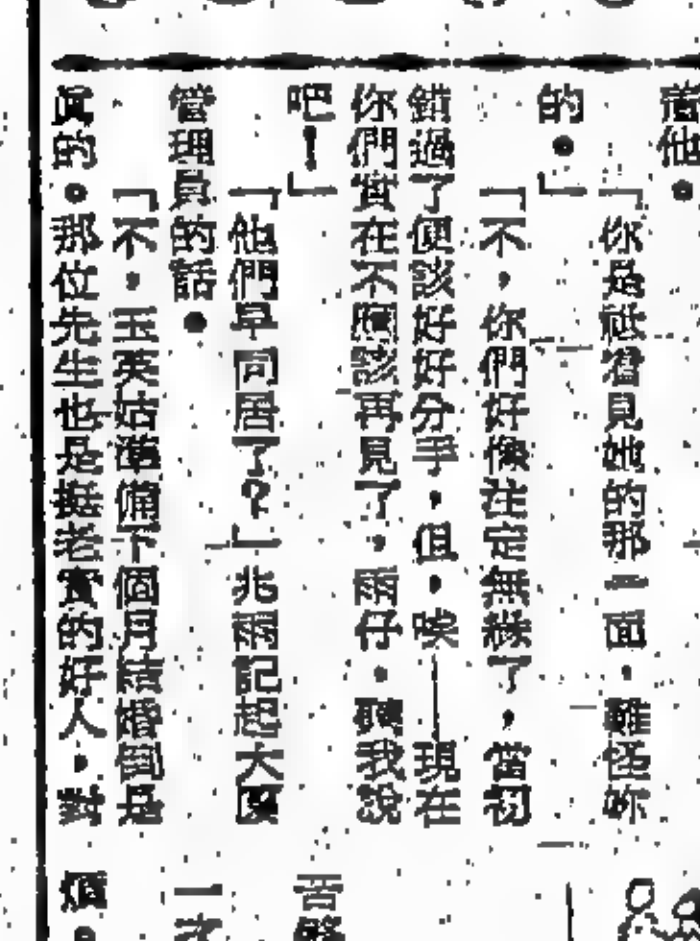 他。
「你是祗看見她的那一面,難怪你
的。」
「不,你們好像注定無緣了,當初
錯過了便該好好分手,但,唉——現在
你們實在不應該再見了,雨仔,聽我說
吧!」
「他們早同居了?」兆雨記起大廈
管理員的話。
「不,玉英姑準備下個月結婚倒是
真的。那位先生也是挺老實的好人,對
苦
一
煩。